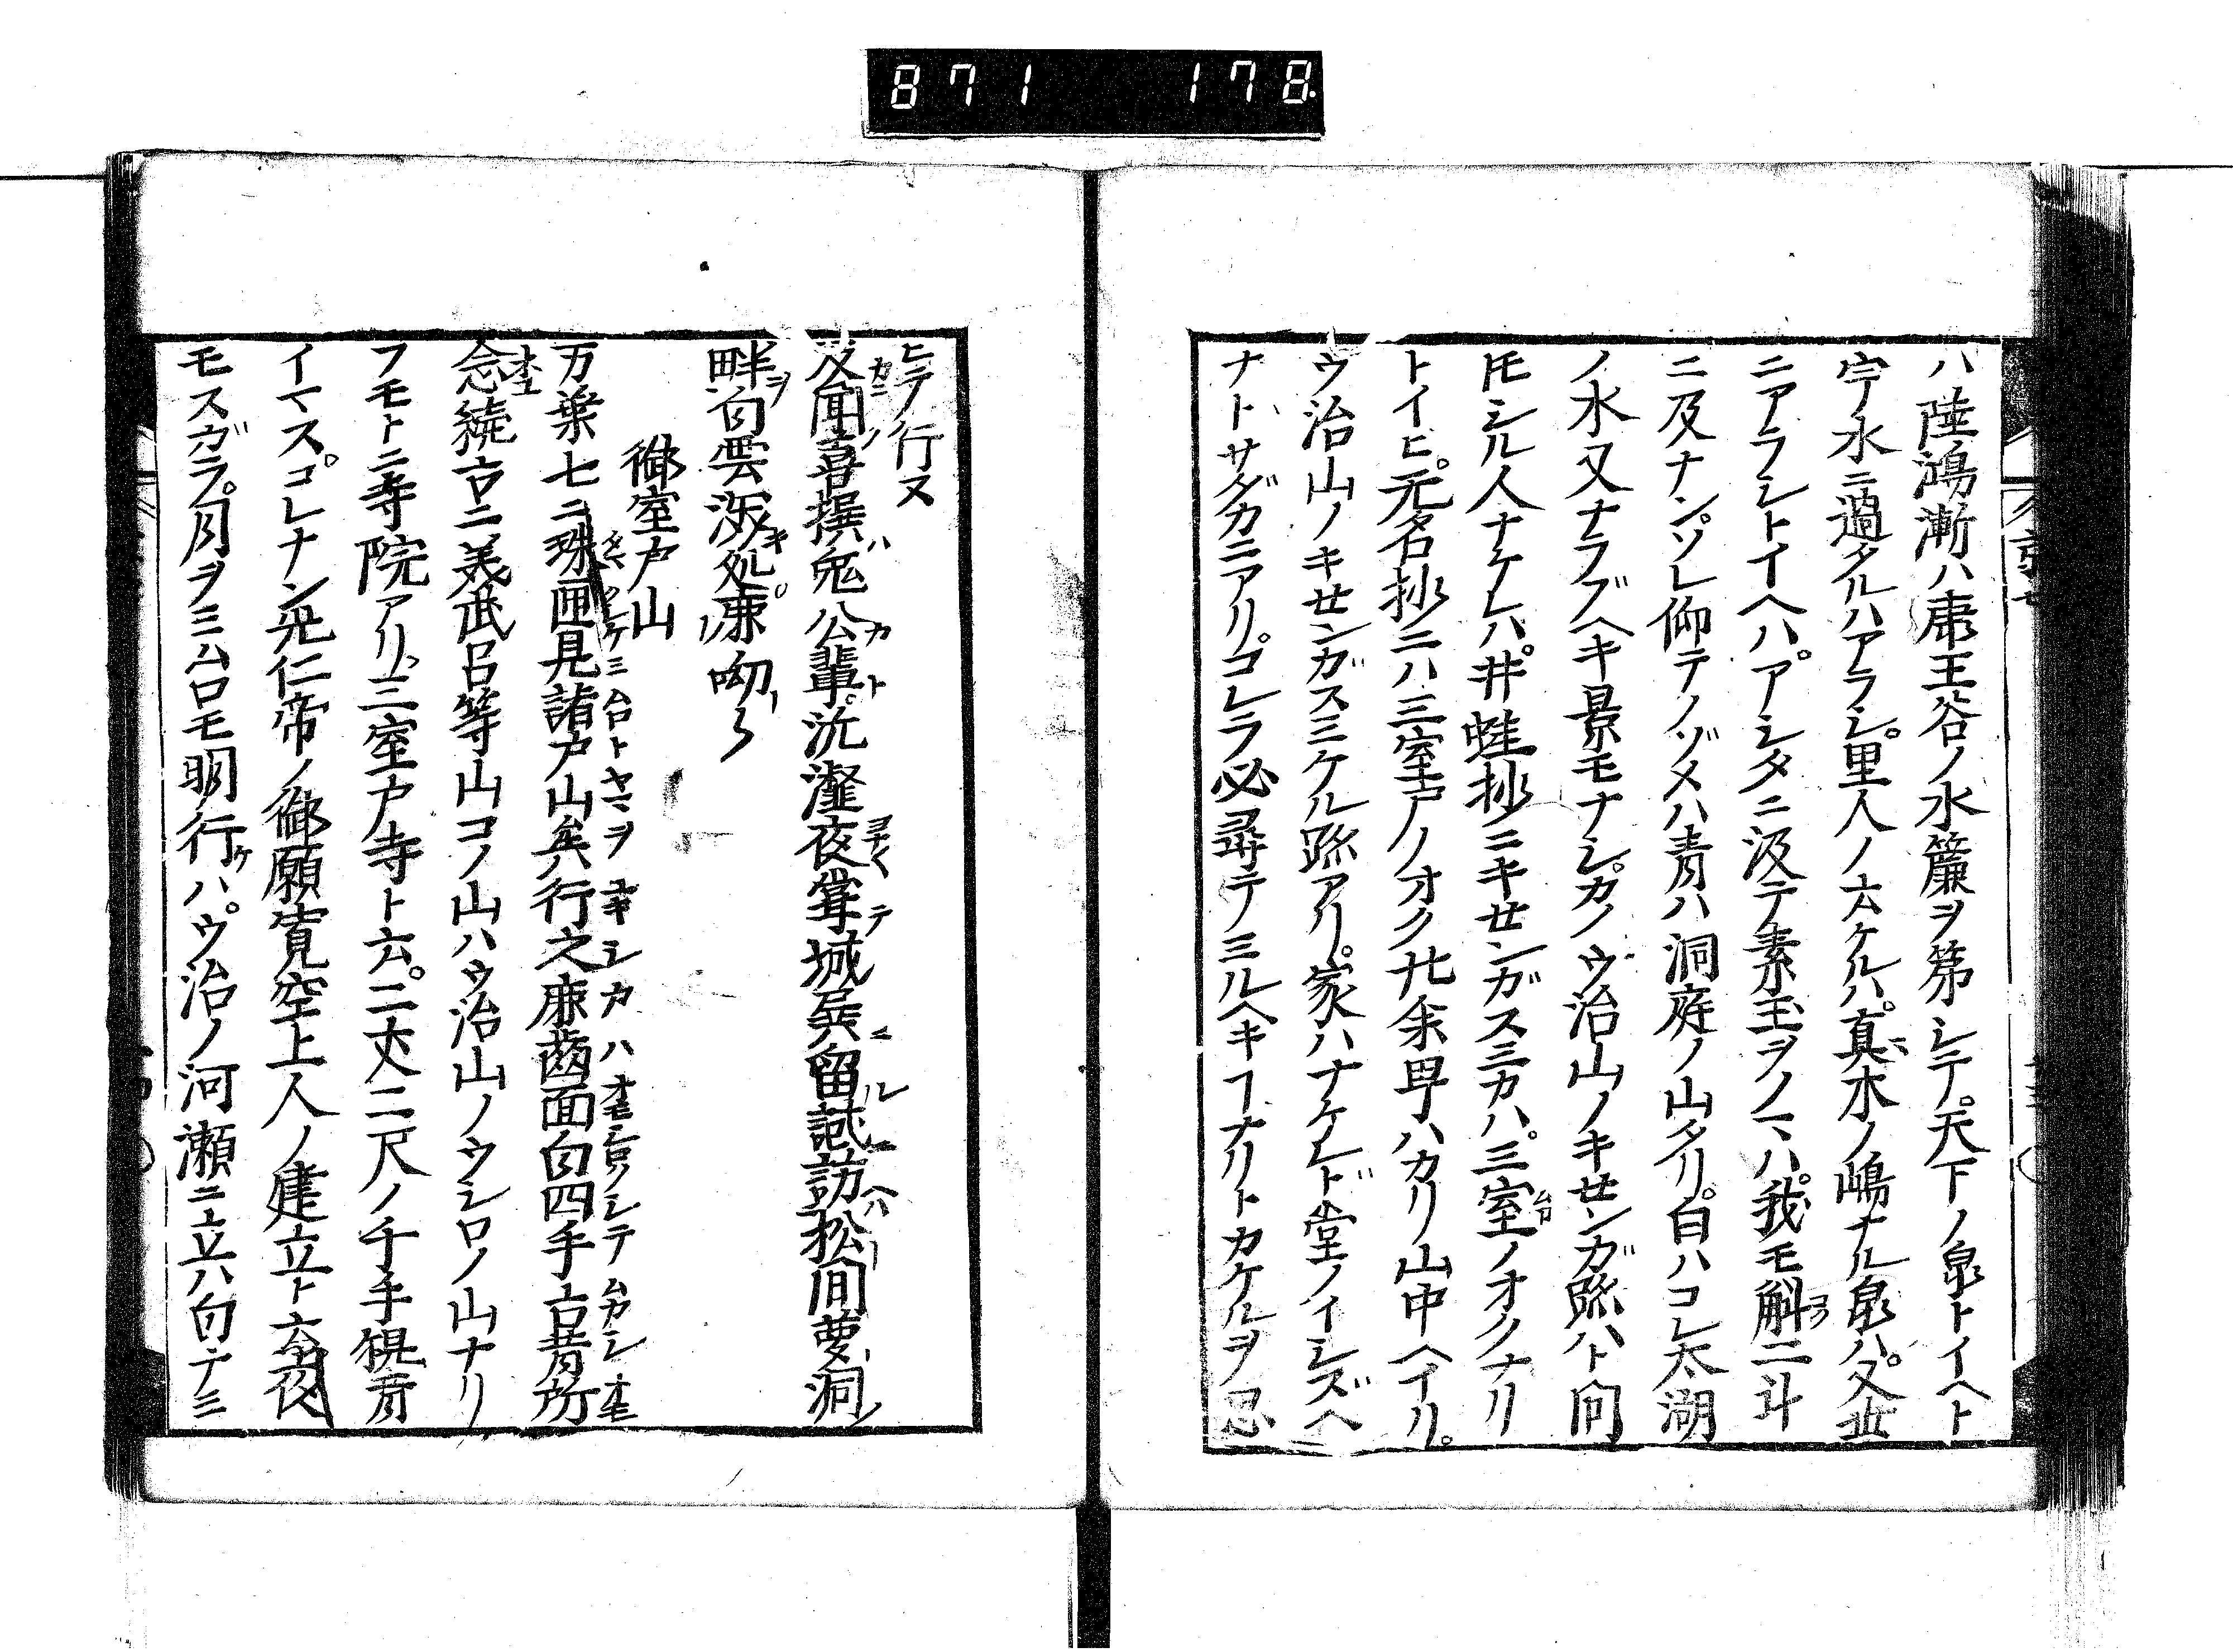 871 178
ハ陸鴻漸ハ康王谷ノ水簾ヲ第シテ。天下ノ泉トイヘト
宇水ニ過タルハアラシ。里人ノ云ケルハ。真木ノ嶋ナル泉ハ。又此
ニアラシトイヘハ。アシタニ汲テ素玉ヲノマハ。我モ斛二斗
ニ及ナン。ソレ仰テノゾメハ青ハ洞庭ノ山タリ。白ハコレ太湖
ノ水又ナラブヘキ景モナシ。カノウ治山ノキセンガ跡ハト問
𪜈シル人ナケレハ。井蛙抄ニキセンガスミカハ。三室ノオクナリ
トイヒ。元名抄ニハ三室戸ノオク廿余町ハカリ山中ヘイリ。
ウ治山ノキセンガスミケル跡アリ。家ハナケレド堂ノイシズヘ
ナトサダカニアリ。コレラ必尋テノミルヘキフナリトカケルヲ忍
ヒテノ行ヌ
及聞喜撰兎公輩。沆瀣夜聳城
留試訪松間夢洞
畔白雲深処康呦〱
御室戸山
万葉七ニ珠匣見諸戸山矣行之康齒面白四手古昔所
念続古ニ美武呂等山コノ山ハウ治山ノウシロノ山ナリ
フモトニ寺院アリ。三室戸寺ト云。二丈二尺ノ千手観音
イマス。コレナン光仁帝ノ御願寛空上人ノ建立ト云夜
モスガラ。月ヲミムロモ明行ハ。ウ治ノ河瀬ニ立ハ白ナミ